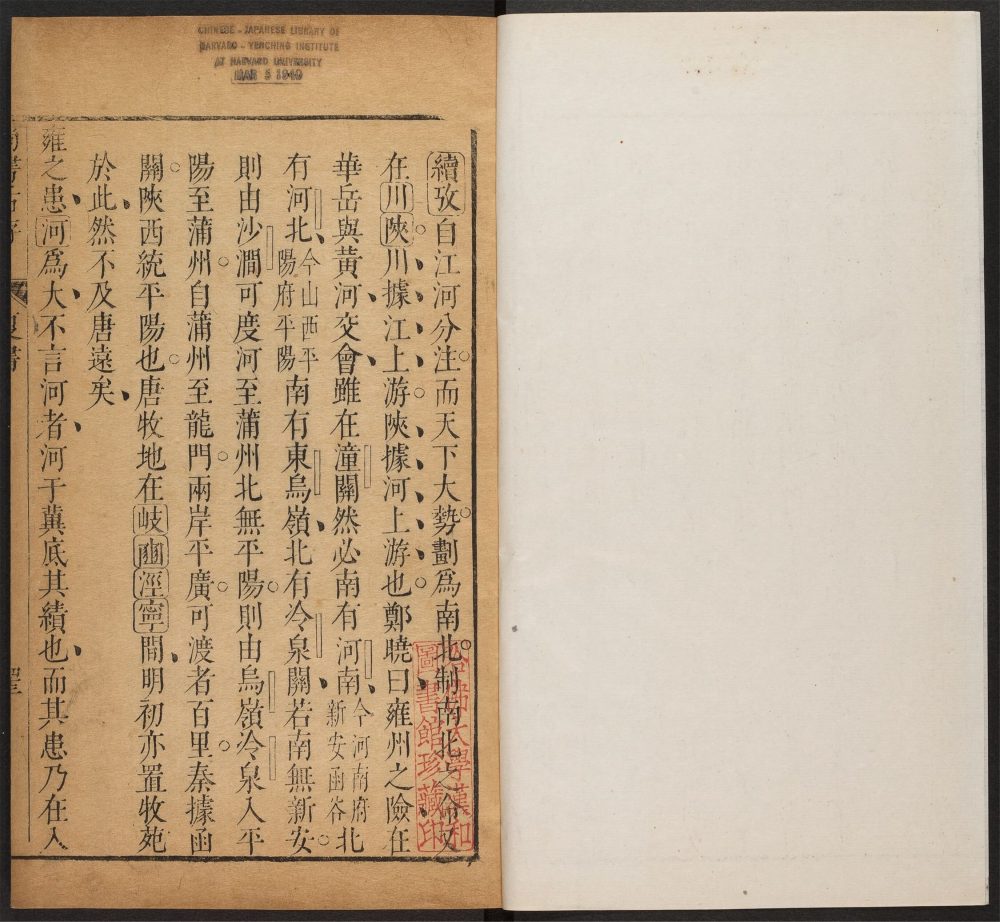 CHINESE - JAPANESE LIBRARY OF
HARVARD - YENCHING INSTITUTE
AT HARVARD UNIVERSITY
MAR 5 1940
續攷自江河分注而天下大勢劃爲南北制南北之命又
在川陜川據江上游陜據河上游也鄭曉曰雍州之險在
華岳與黃河交會雖在潼關然必南有河南今河南府新安函谷北
有河北今山西平陽府平陽南有東烏嶺北有冷泉關若南無新安
則由沙澗可度河至蒲州北無平陽則由烏嶺冷泉入平
陽至蒲州自蒲州至龍門兩岸平廣可渡者百里秦據函
關陜西統平陽也唐牧地在岐豳涇寧間明初亦置牧苑
於此然不及唐遠矣
雍之患河爲大不言河者河于冀底其績也而其患乃在入
夏書
哈佛大學漢和
圖書館珍藏印